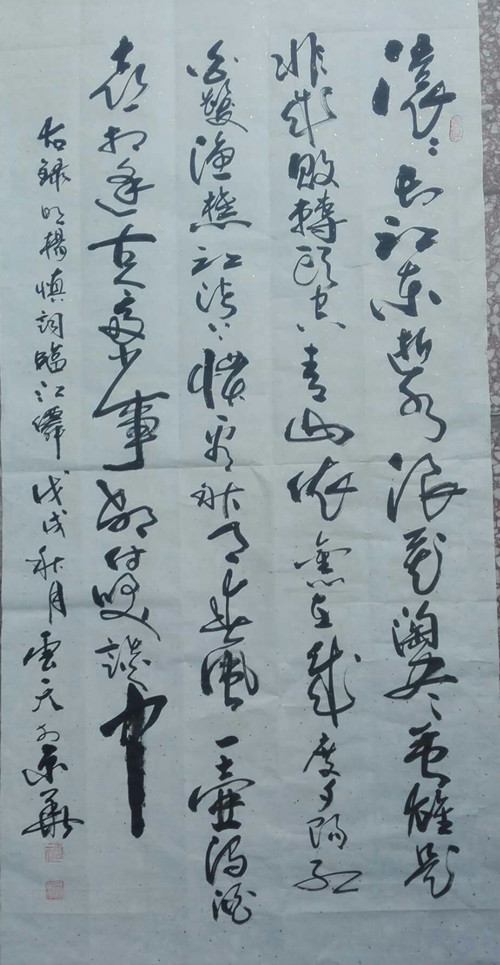 滚滚长江东逝水浪花淘尽英雄是
非成败轉头空青山依舊在幾度夕阳红
白髮渔樵江渚上惯看秋月春風一壺浊酒
喜相逢古今多少事都付笑談中
右錄明楊慎詞臨江仙戊戌秋月雲天外